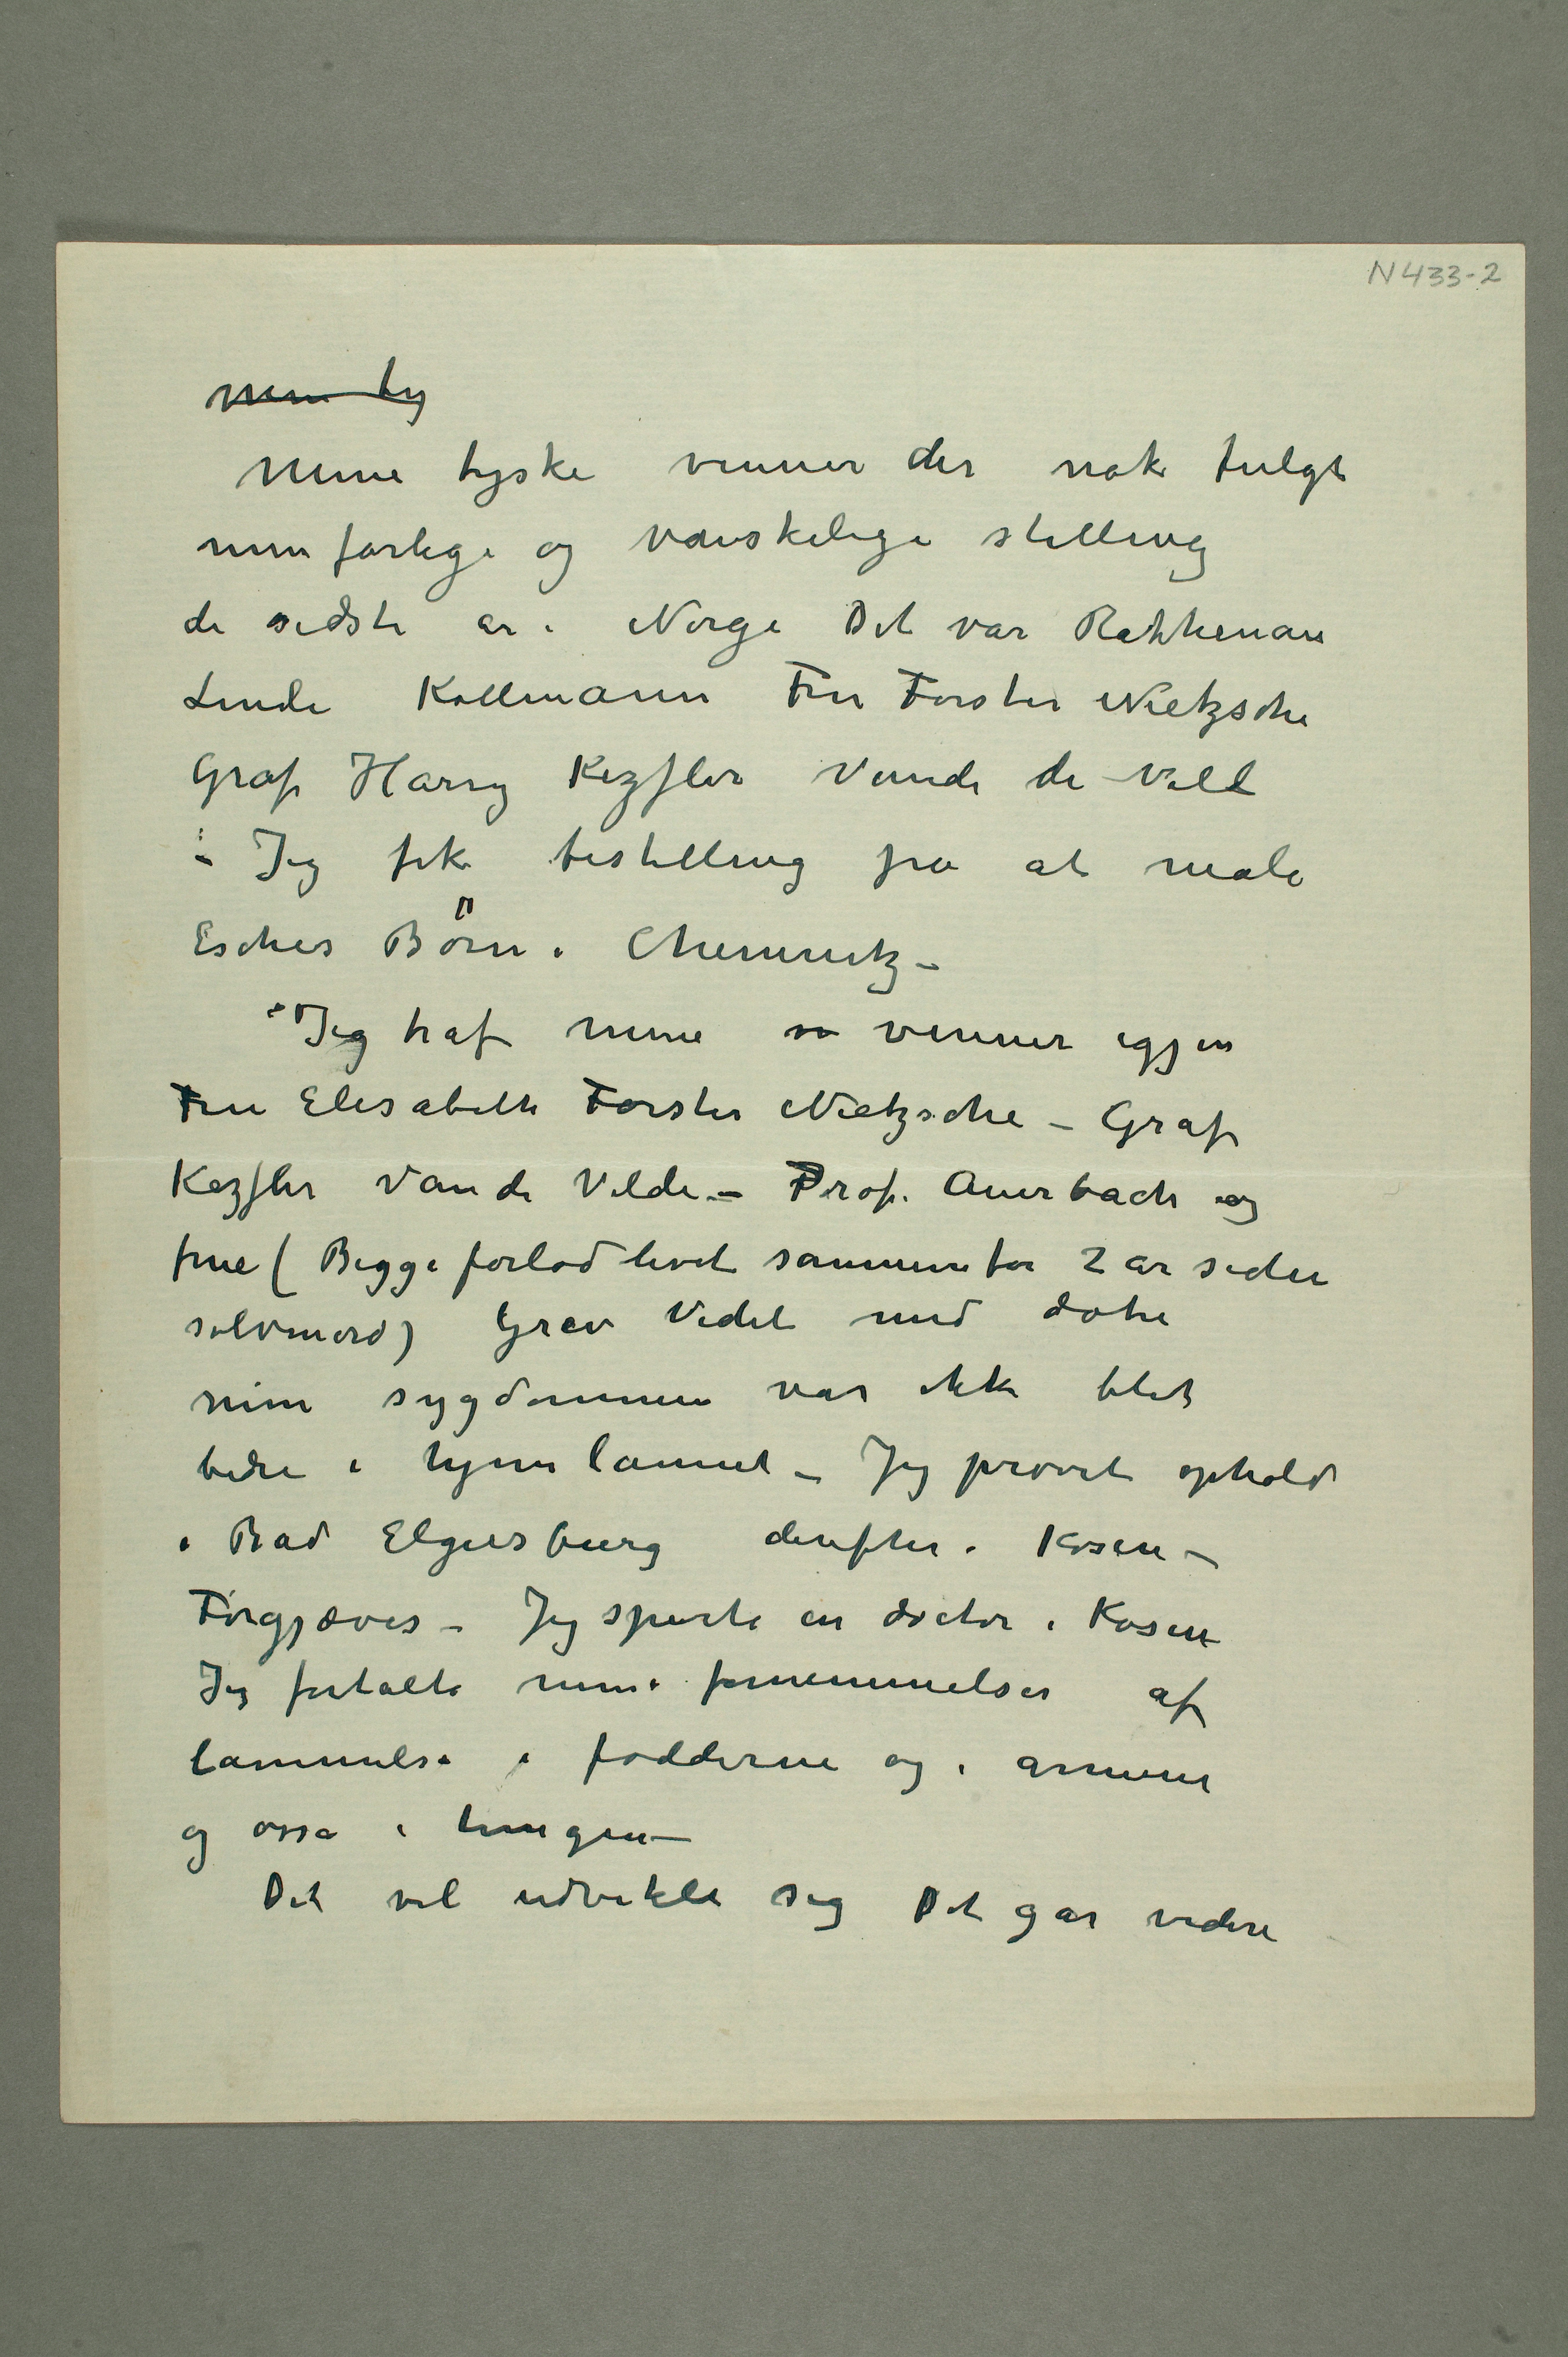 N433-2
Min ty
Mine tyske venner der nok fulgt
min farlige og vanskelige stilling
de sidste år i Norge Det var Rathenau
Linde Kollmann Fru Førster Nietzsche
Graf Harry Kezfler Vande de Veld
– Jeg fik bestilling på at male
Esches Börn i Chemnitz –
Jeg traf mine venner igjen
Fru Elisabeth Førster Nietzsche – Graf
Kezfler Van de Velde – Prof. Auerbach og
frue (Begge forlod livet sammen for 2 år siden
selvmord) Grev Vedel med døtre
min sygdommen var ikke blet
bedre i hjemlannet – Jeg prøvet ophold
i Bad Elgersburg derefter i Køsen –
Forgjæves – Jeg spurte en doctor i Køsen
Jeg fortalte mine fornemmelser af
lammelse i fødderne og i armene
og osså i tungen –
Det vil udvikle sig Det går videre